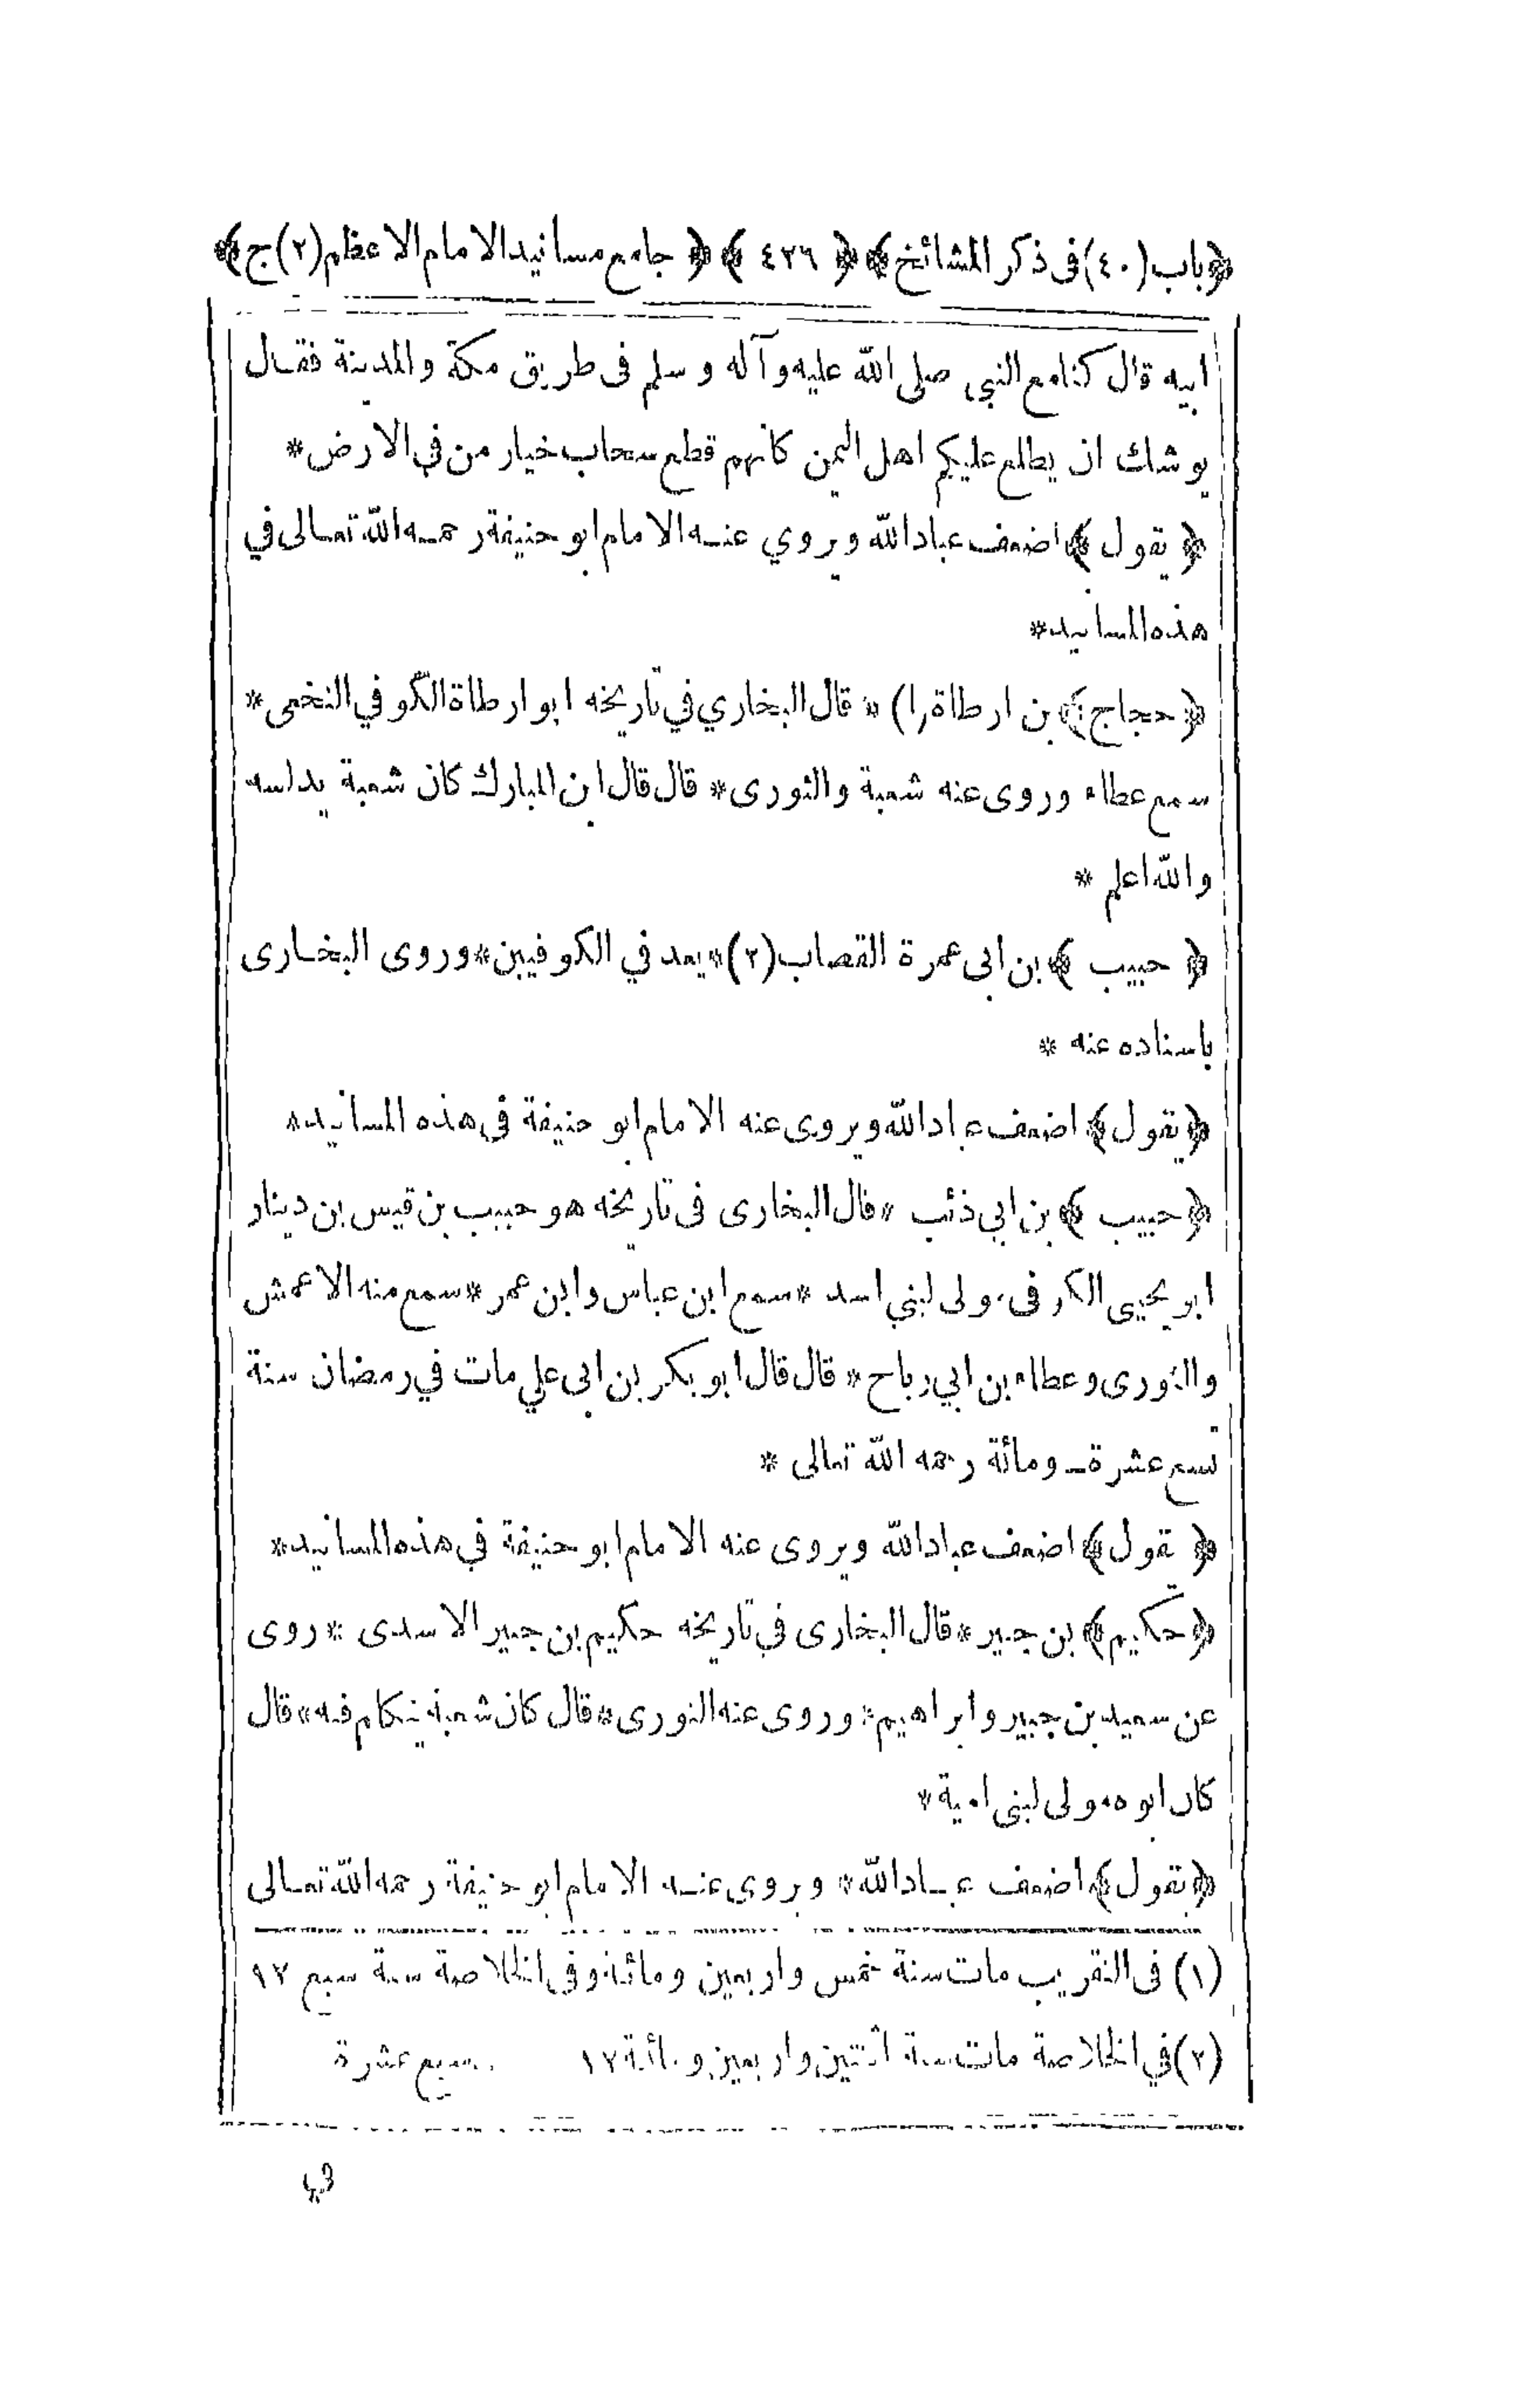 ﴿باب (٤٠) فى ذكر المشائخ﴾ ﴿ ٤٢٦ ﴾ ﴿ جامع مسانيد الامام الاعظم (٢) ج﴾
ابيه قال كنا مع النبي صلى الله عليه وآله وسلم فى طريق مكة والمدينة فقال
يوشك ان يطلع عليكم اهل اليمن كانهم قطع سحاب خيار من في الارض *
﴿ يقول ﴾ اضعف عباد الله ويروي عنه الامام ابو حنيفة رحمه الله تعالى في
هذه المسانيد *
﴿ حجاج ﴾ بن ارطاة (١) * قال البخاري في تاريخه ابو ارطاة الكوفي النخعى *
سمع عطاء وروى عنه شعبة والثورى * قال قال ابن المبارك كان شعبة يدلسه
والله اعلم *
﴿ حبيب ﴾ بن ابى عمرة القصاب (٢) * يعد في الكوفيين * وروى البخارى
باسناده عنه *
﴿ يقول ﴾ اضعف عباد الله ويروى عنه الامام ابو حنيفة فى هذه المسانيد *
﴿ حبيب ﴾ بن ابي ذئب * قال البخارى فى تاريخه هو حبيب بن قيس بن دينار
ابو يحيى الكوفى مولى لبني اسد * سمع ابن عباس وابن عمر * سمع منه الاعمش
والثورى وعطاء بن ابي رباح * قال قال ابو بكر بن ابى علي مات في رمضان سنة
تسع عشرة ـ ومائة رحمه الله تعالى *
﴿ يقول ﴾ اضعف عباد الله ويروى عنه الامام ابو حنيفة في هذه المسانيد *
﴿ حكيم ﴾ بن جبير * قال البخارى في تاريخه حكيم بن جبير الاسدى * روى
عن سعيد بن جبير وابراهيم * وروى عنه الثورى * قال كان شعبة يتكلم فيه * قال
كان ابوه مولى لبنى امية *
﴿ يقول ﴾ اضعف عباد الله * ويروى عنه الامام ابو حنيفة رحمه الله تعالى
(١) فى التقريب مات سنة خمس واربعين ومائة وفى الخلاصة سنة سبع ١٢
(٢) في الخلاصة مات سنة اثنتين واربعين ومائة ١٢ سبع عشرة
في